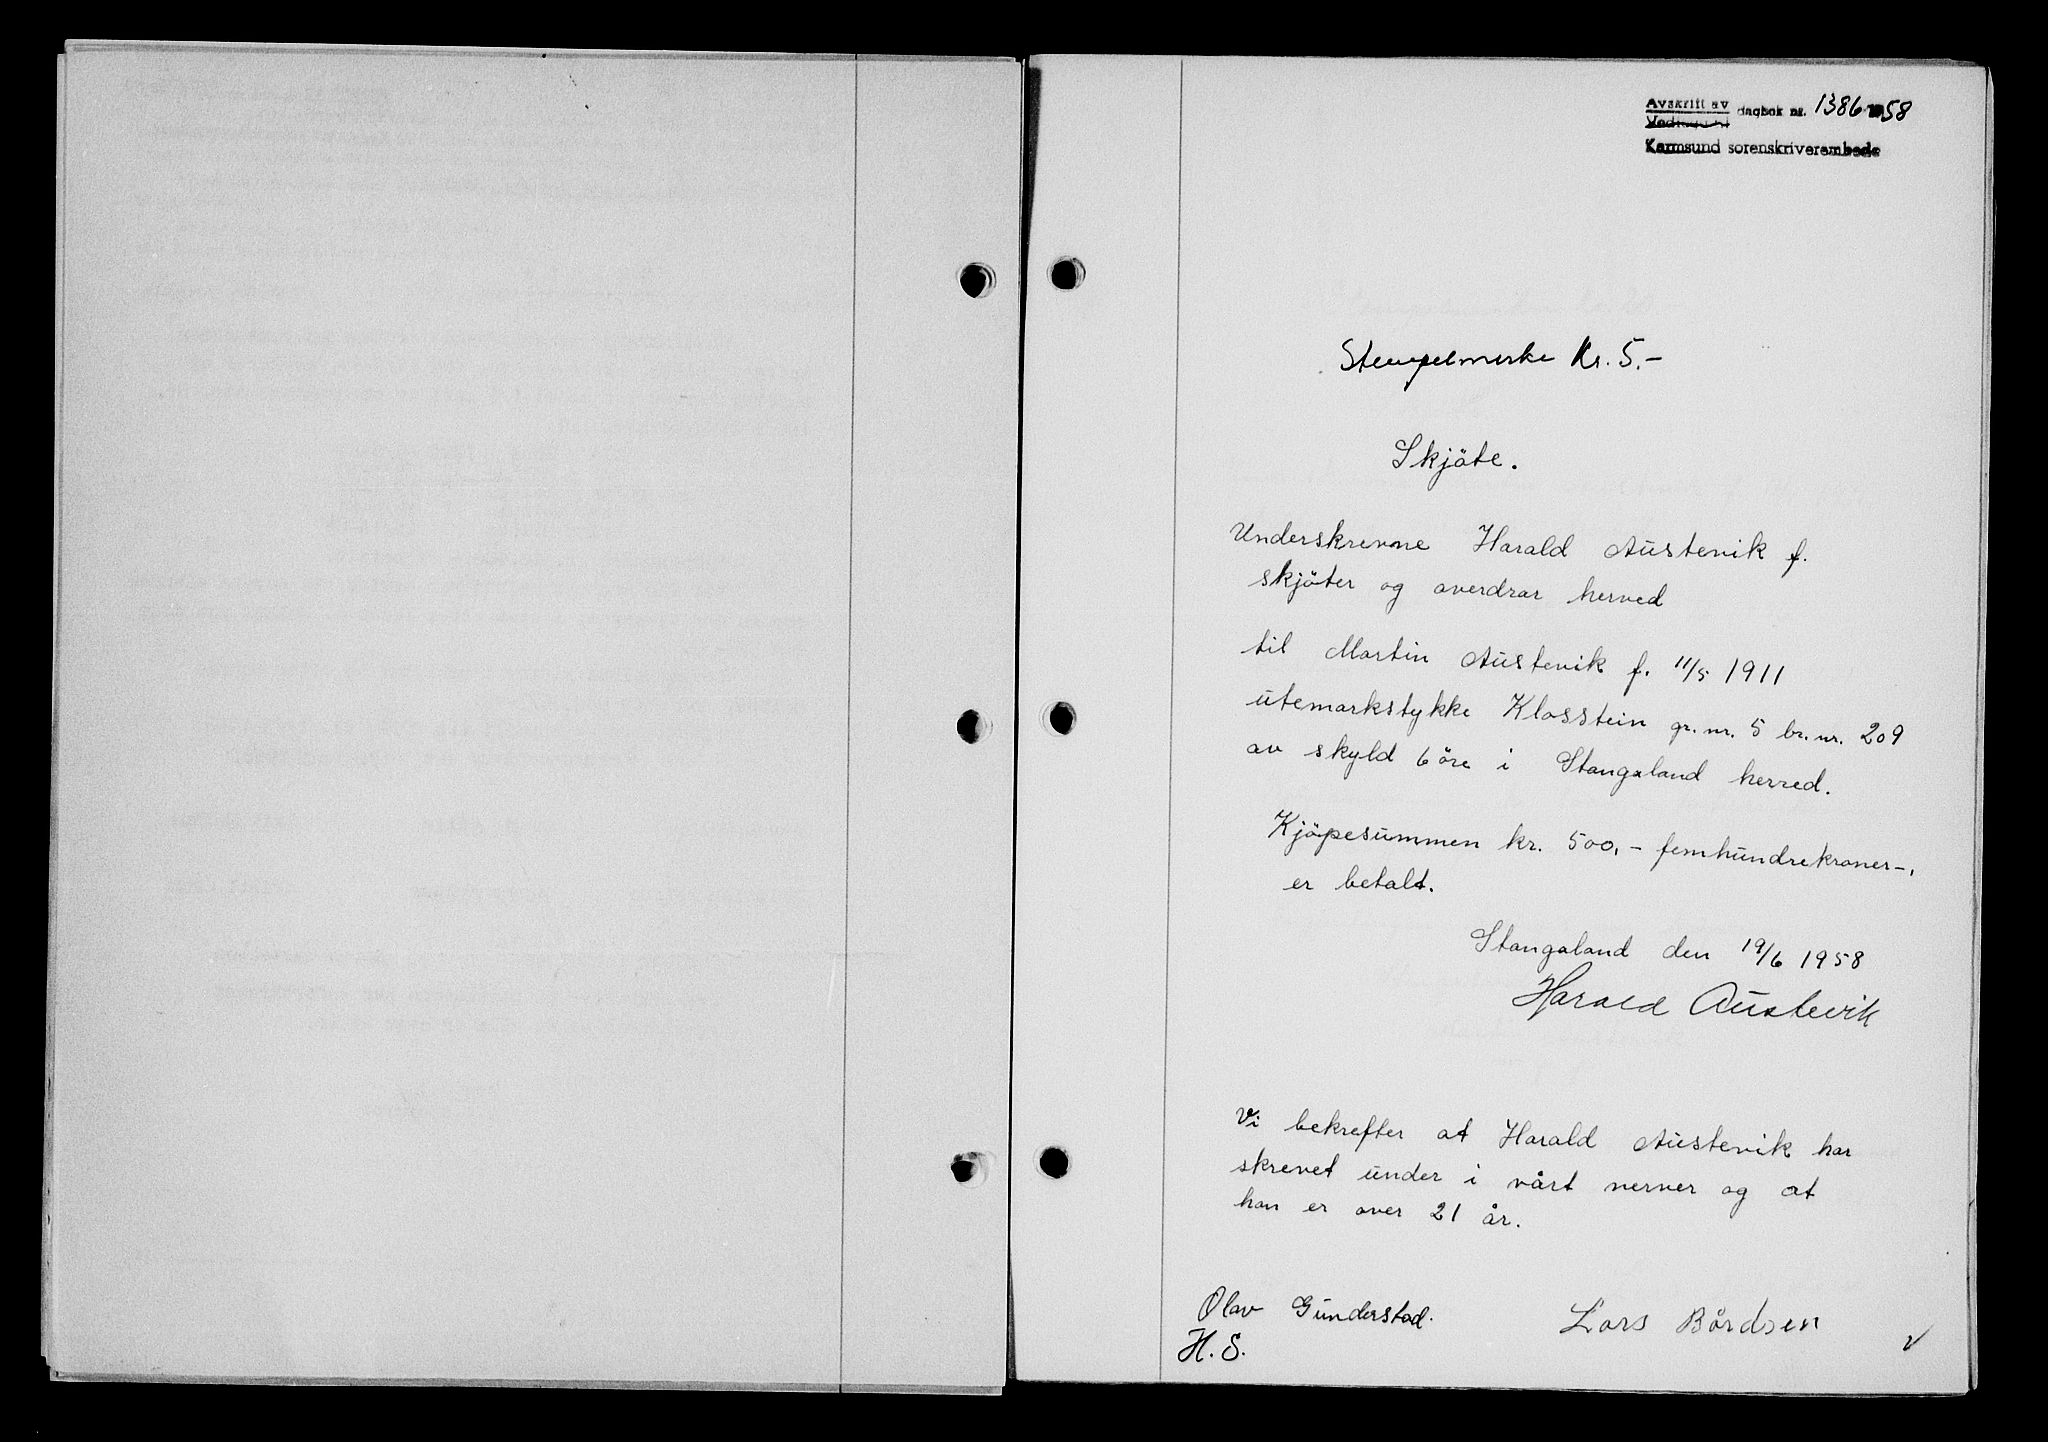 Avskrift av dagbok nr. 1386 58
Karmsund sorenskriverembede
Stempelmerke Kr. 5.-
Skjöte.
Underskrevne Harald Austevik f.
skjöter og overdrar herved
til Martin Austevik f. 11/5 1911
utemarkstykke Klosstein gr. nr. 5 br. nr. 209
av skyld 6 öre i Stangaland herred.
Kjöpesummen kr. 500,- femhundrekroner-,
er betalt.
Stangaland den 19/6 1958
Harald Austevik
Vi bekrefter at Harald Austevik har
skrevet under i vårt nerver og at
han er over 21 år.
Olav Gunderstad. Lars Bårdsen
H. S.